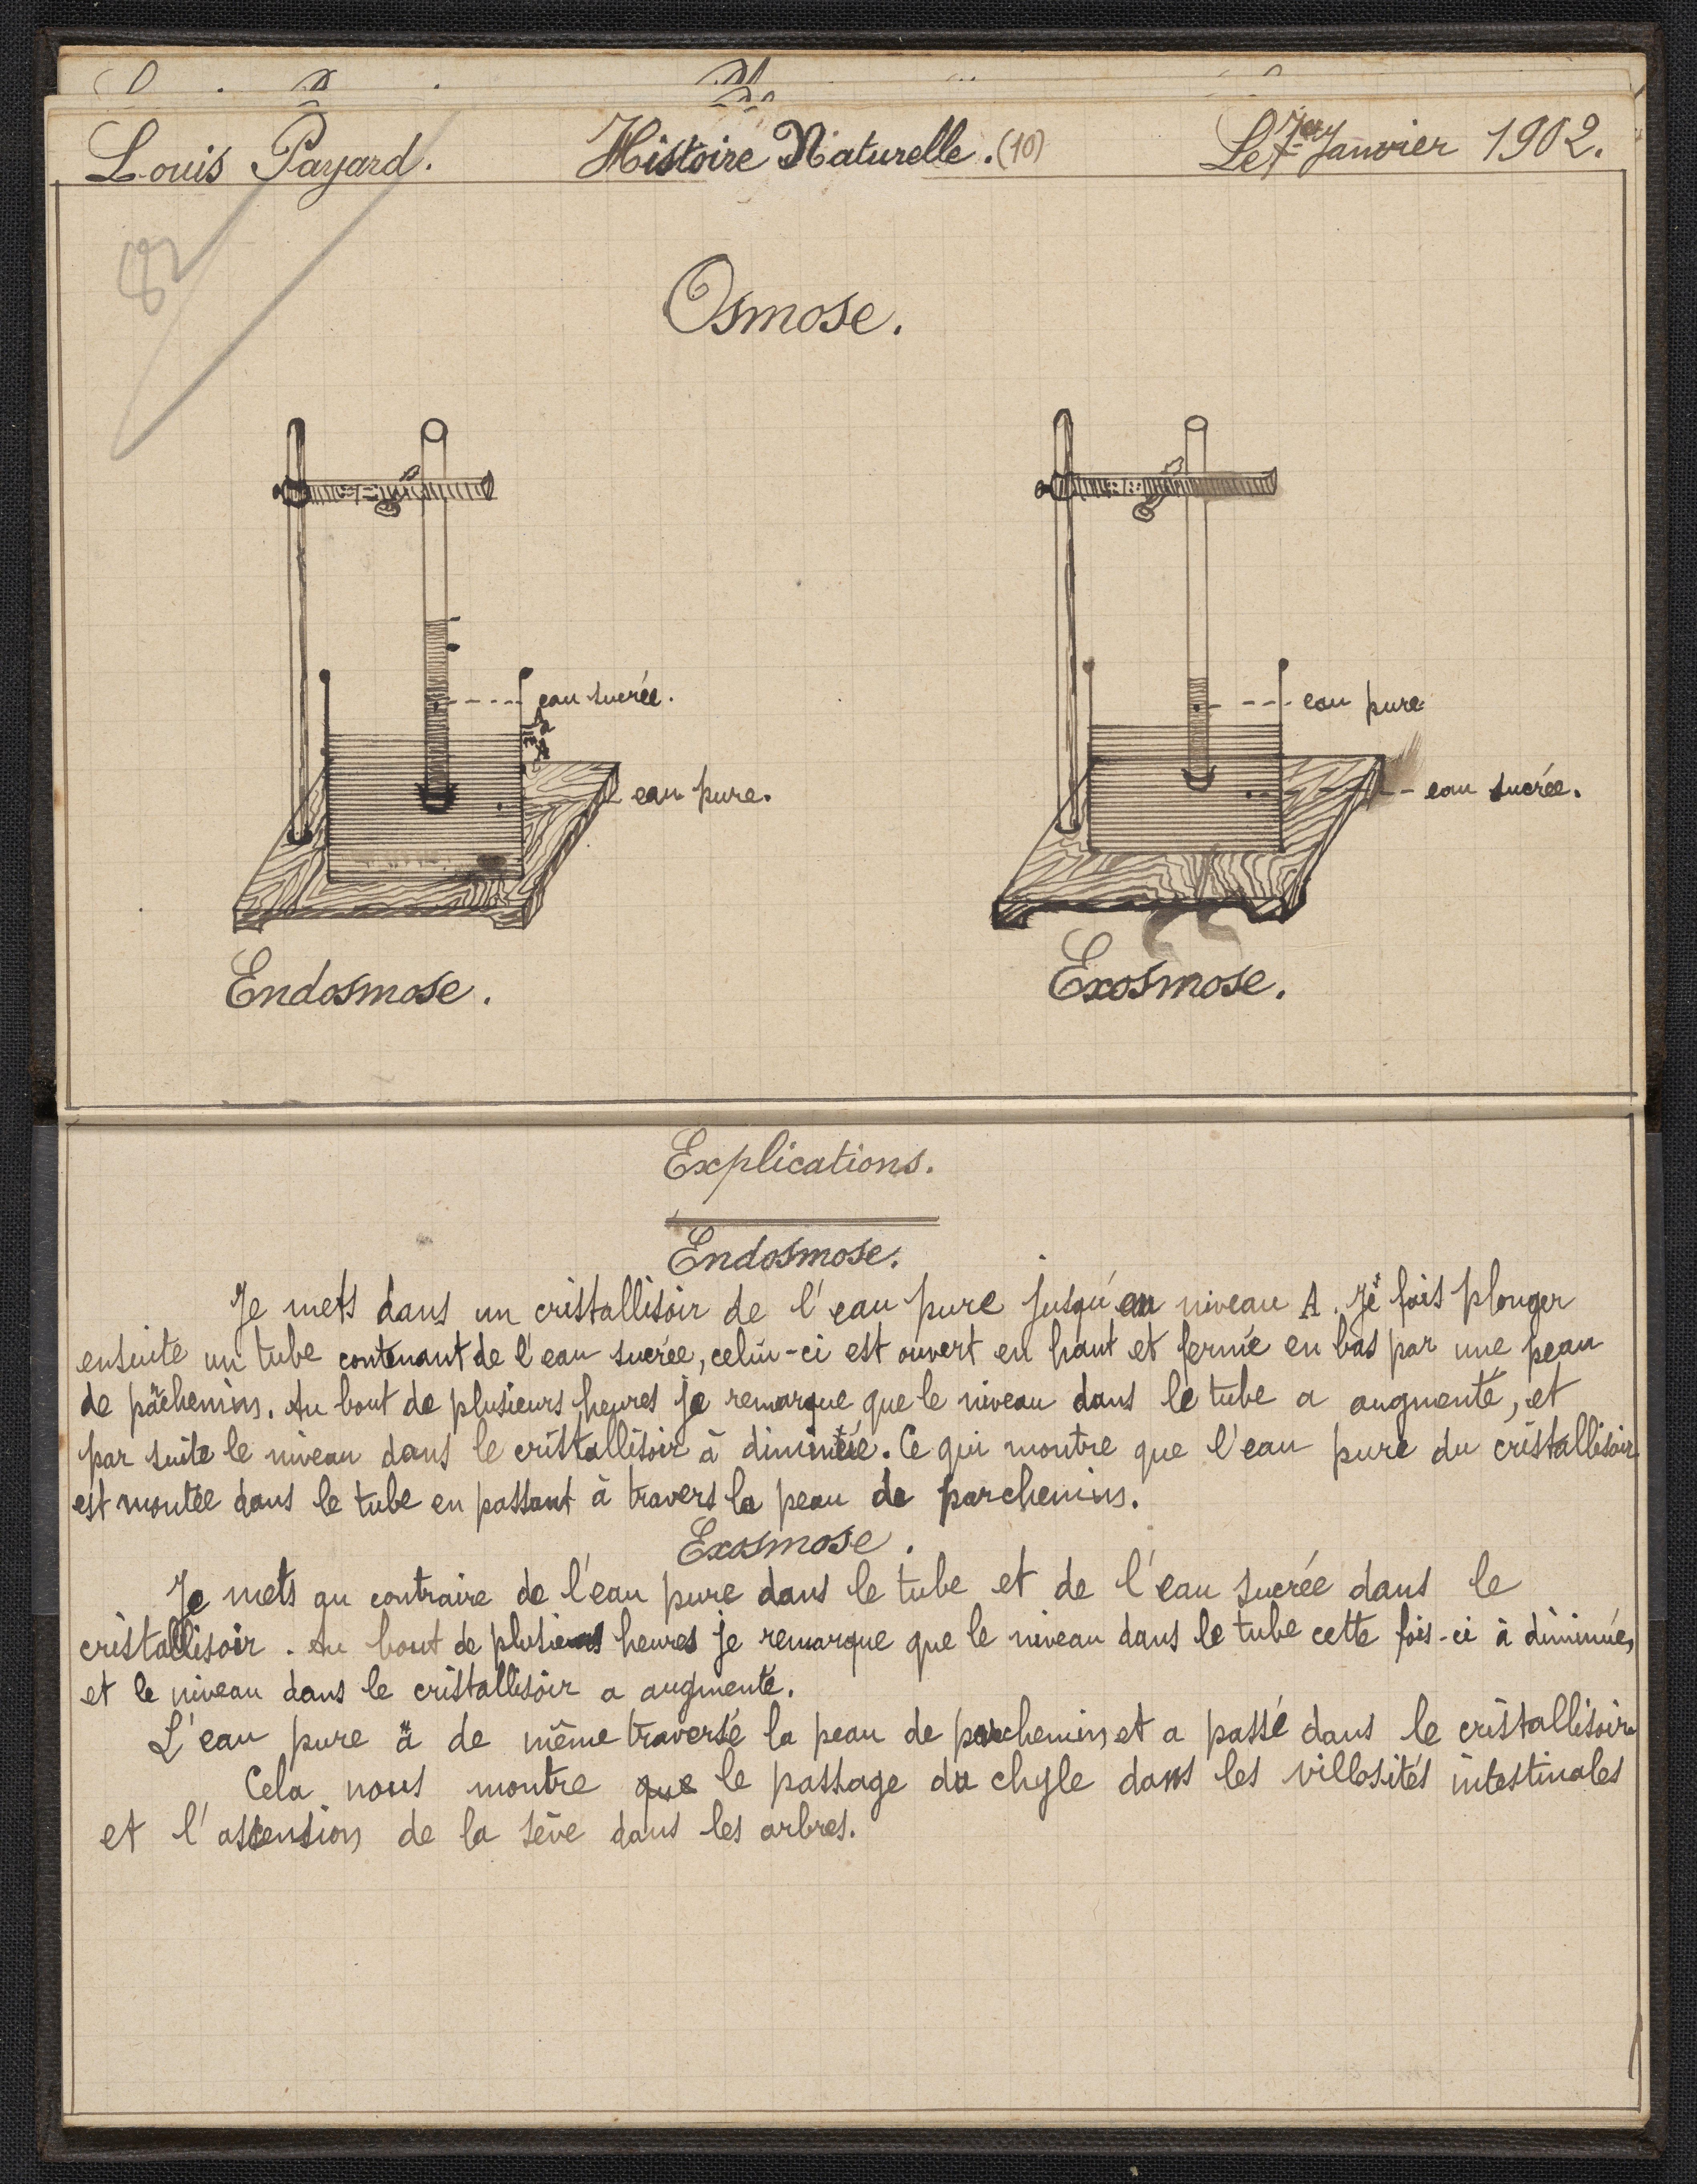 Louis Payard. Histoire Naturelle. (10) Le 7 Janvier 1902.
Osmose.
eau sucrée. eau pure
eau pure. eau sucrée.
Endosmose. Exosmose.
Explications.
Endosmose.
Je mets dans un cristallisoir de l'eau pure jusqu'au niveau A. Je fais plonger
ensuite un tube contenant de l'eau sucrée, celui-ci est ouvert en haut et fermé en bas par une peau
de parchemin. Au bout de plusieurs heures je remarque que le niveau dans le tube a augmenté, et
par suite le niveau dans le cristallisoir à diminuée. Ce qui montre que l'eau pure du cristallisoir
est montée dans le tube en passant à travers la peau de parchemin.
Exosmose.
Je mets au contraire de l'eau pure dans le tube et de l'eau sucrée dans le
cristallisoir. Au bout de plusieurs heures je remarque que le niveau dans le tube cette fois-ci à diminué,
et le niveau dans le cristallisoir a augmenté.
L'eau pure a de même traversé la peau de parchemin et a passé dans le cristallisoir
Cela nous montre que le passage du chyle dans les villosités intestinales
et l'ascension de la sève dans les arbres.